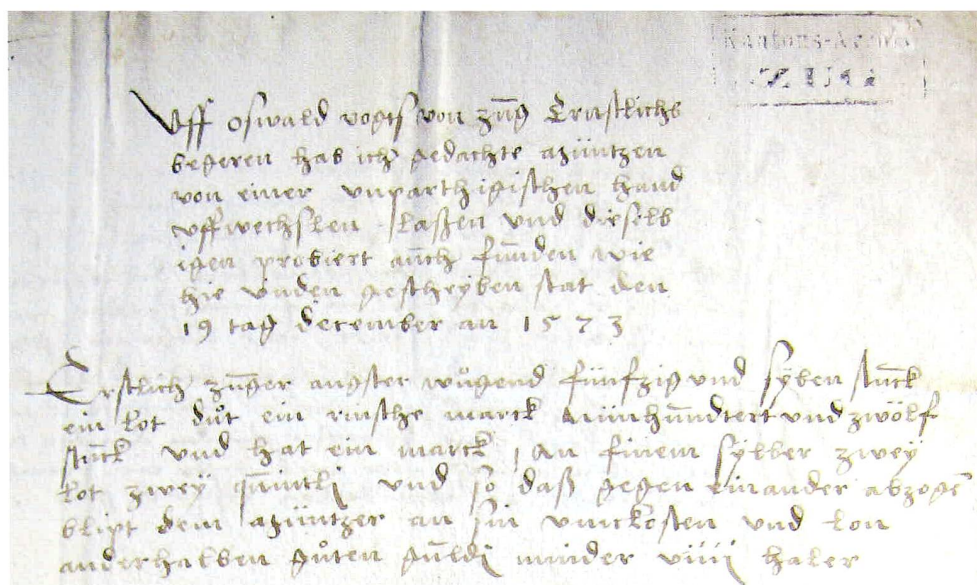 Kantons-Archiv
ZUG
Uff oswald vogts von zůg Ernstlichs
begeren hab ich gedachte müntzen
von einer vnparthigischen hand
uffwechslen laßen vnd dieselb
igen probiert auch funden wie
hie vnden geschryben stat den
19 tag december an 1573
Erstlich zuger angster wůgend fünfzig und syben stuck
ein lot důt ein rinsche marck nünhundtert und zwölf
stuck vnd hat ein marck an finem sylber zwey
lot zwey quintli vnd so daß gegen einander abzogē
blipt dem müntzer an sin vnckosten vnd lon
anderhalben gůten guldi minder viiii haler